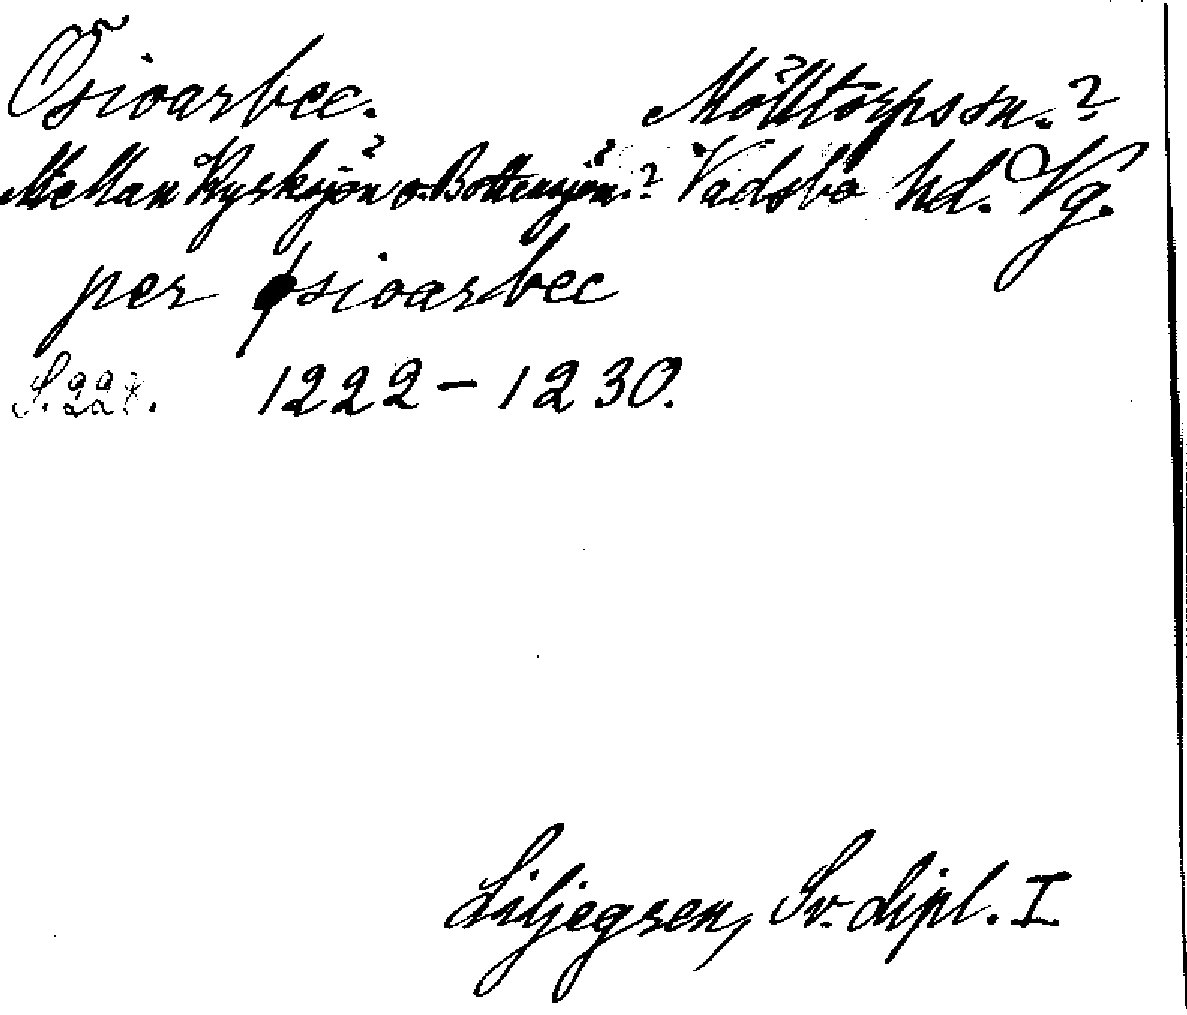 Ösioarbec. Mölltorps sn.?
Mellan Kyrksjön o. Bottensjön? Vadsbo hd. Vg.
per øsioarbec
S. 228. 1222–1230.
Liljegren, Sv. dipl. I